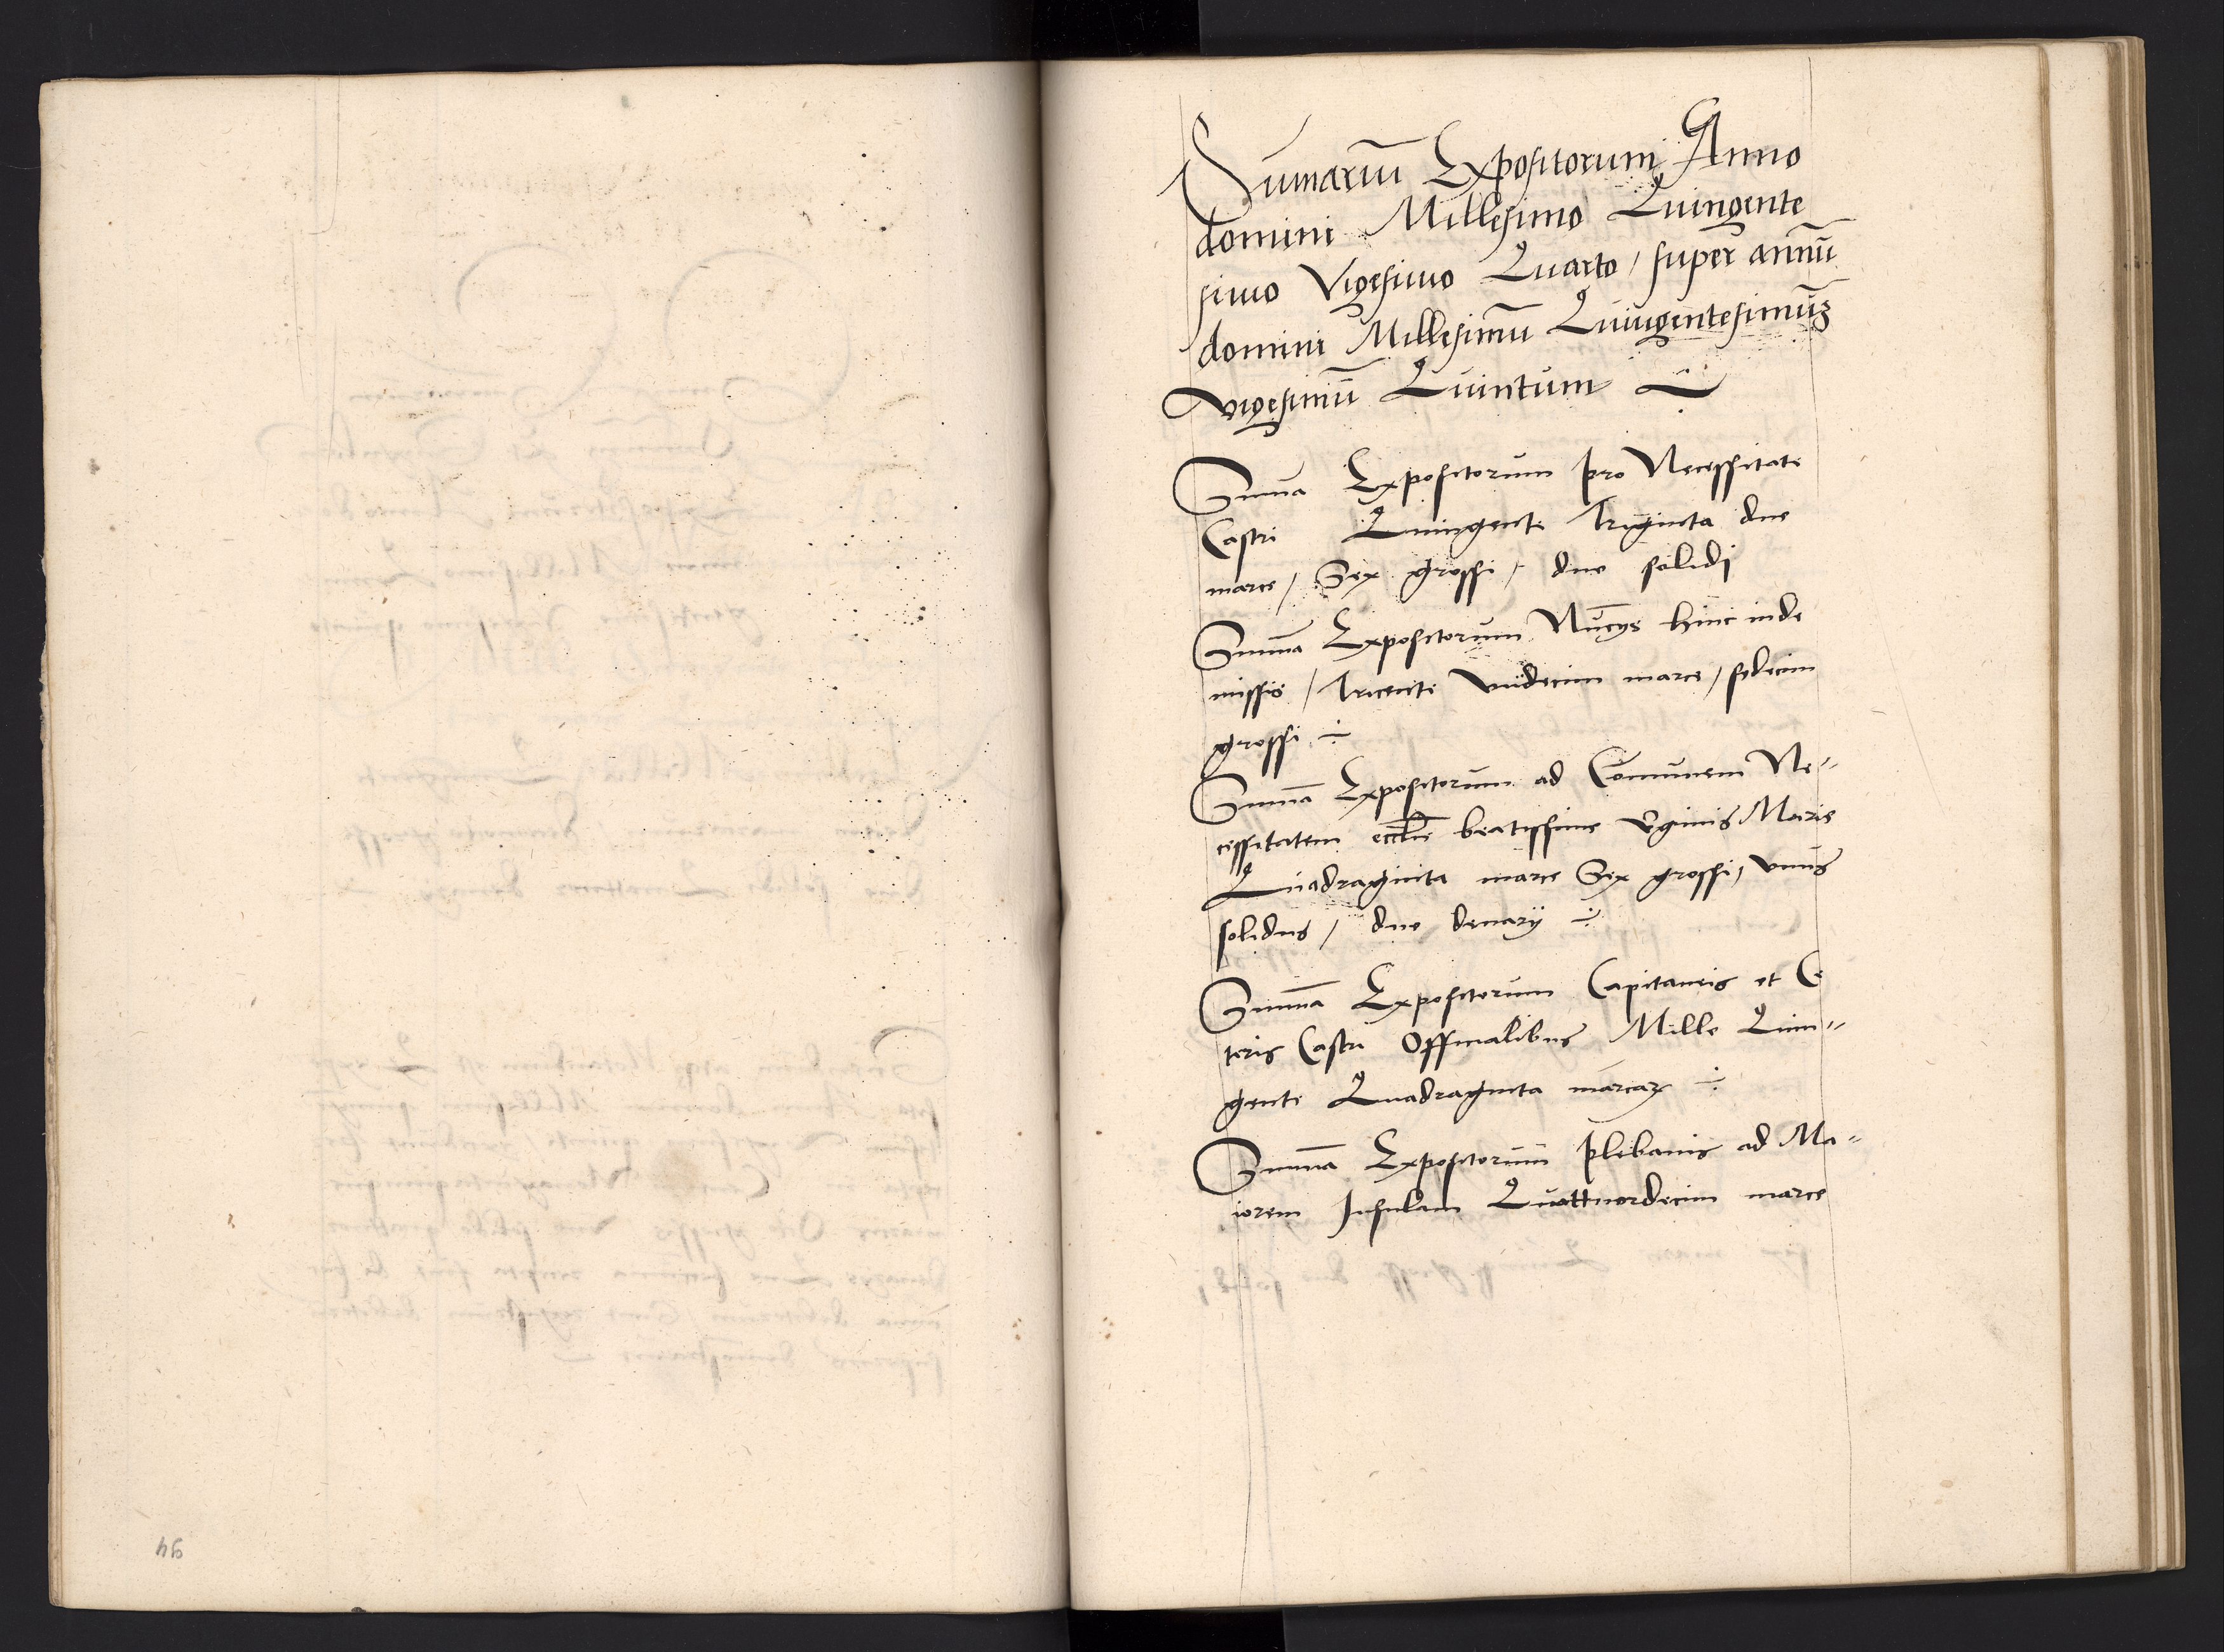 Sum̄ariū Expositorum Anno
domini Millesimo Quingente
simo Vigesimo Quarto / super annū
domini Millesimū Quingentesimūʒ
vigesimū Quintum
Suma Expositorum pro Necessitate
Castri Quingente Triginta due
marce / Sex grossi / duo solidj
Sum̄a Expositorum Nūcijs hinc inde
missis / Tricente vndecim marce / sedecim
grossi
Sum̄a Expositorum ad Com̄unem Ne=
cessitatem eccłie beatissime v̄ginis Marie
Quadraginta marce Sex grossi, vnus
solidus / duo denarij
Sum̄a Expositorum Capitaneis et Ce
teris Castri Officialibus Mille Quin=
gente Quadraginta marcaꝝ
Sum̄a Expositorum Plebanis ad Ma=
iorem Insulam Quattuordecim marce
94